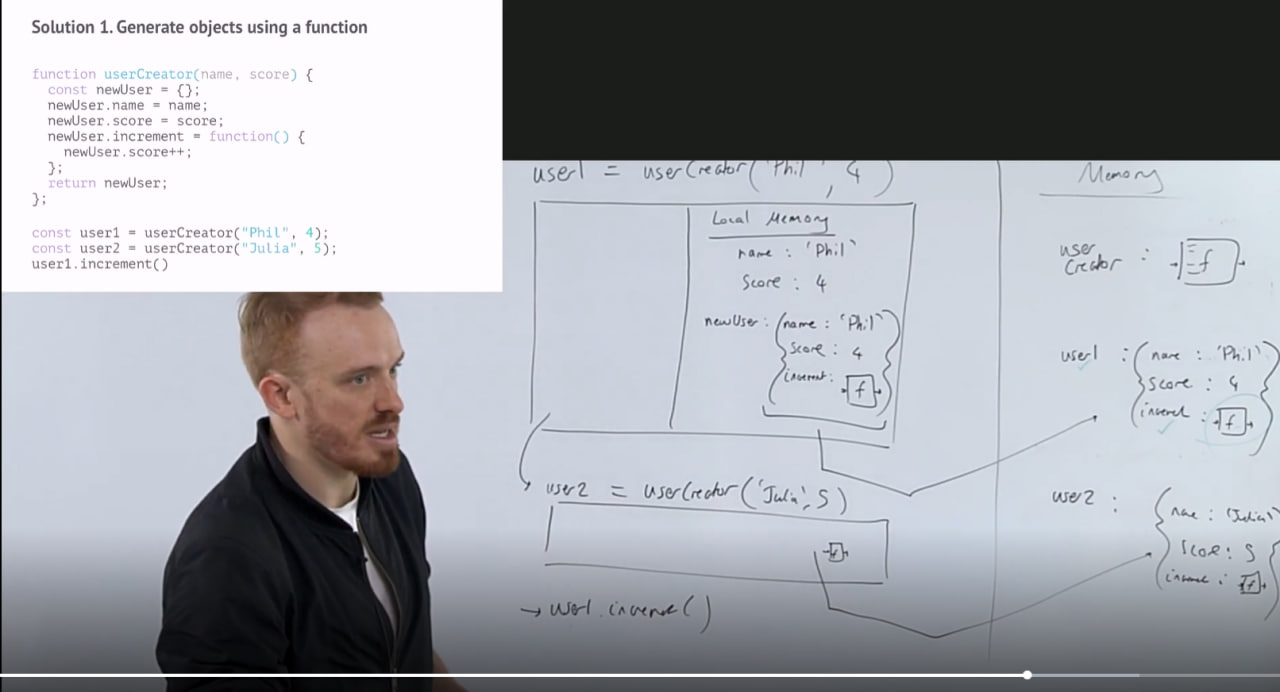 Solution 1. Generate objects using a function
function userCreator(name, score) {
const newUser = {};
newUser.name = name;
newUser.score = score;
newUser.increment = function() {
newUser.score++;
};
return newUser;
};
const user1 = userCreator("Phil", 4);
const user2 = userCreator("Julia", 5);
user1.increment()
user1 = userCreator('Phil', 4)
Local Memory
name : 'Phil'
Score : 4
newUser : { name : 'Phil'
Score : 4
f
user2 = userCreator('Julia', 5)
f
Memory
user
Creator : f
user1 : { name : 'Phil'
Score : 4
f
user2 :
Score : 5
f